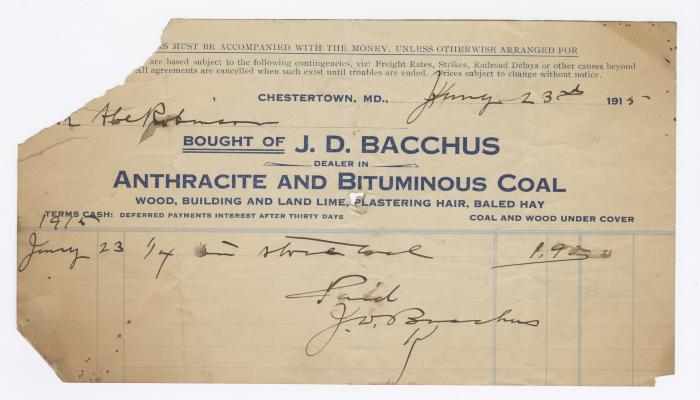 MUST BE ACCOMPANIED WITH THE MONEY, UNLESS OTHERWISE ARRANGED FOR
are based subject to the following contingencies, viz: Freight Rates, Strikes, Railroad Delays or other causes beyond
All agreements are cancelled when such exist until troubles are ended. Prices subject to change without notice.
CHESTERTOWN, MD., Jany 23rd 1915
Abe Robinson
BOUGHT OF J. D. BACCHUS
DEALER IN
ANTHRACITE AND BITUMINOUS COAL
WOOD, BUILDING AND LAND LIME, PLASTERING HAIR, BALED HAY
TERMS CASH: DEFERRED PAYMENTS INTEREST AFTER THIRTY DAYS COAL AND WOOD UNDER COVER
1915
Jany 23 1/4 stove coal 1.90
Paid
J. D. Bacchus